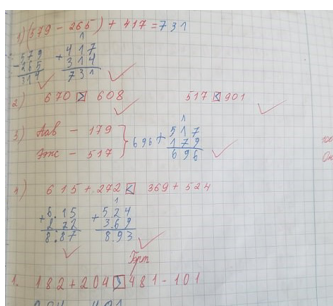 1) (579 - 265) + 417 = 731
- 579
265
314
1
+ 417
314
731
2) 670 > 608 517 < 901
3) Лав - 179
- 517
} 696
1
+ 517
179
696
4) 615 + 272 < 369 + 524
+ 6.15
2.72
8.87
1
+ 5.24
3.69
8.93
1. 182 + 204 > 481 - 101